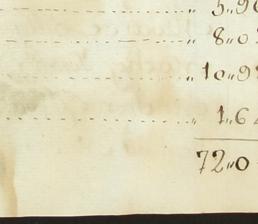 „ 5„90
„ 8„0
„ 10„9
„ 1„6
72„0